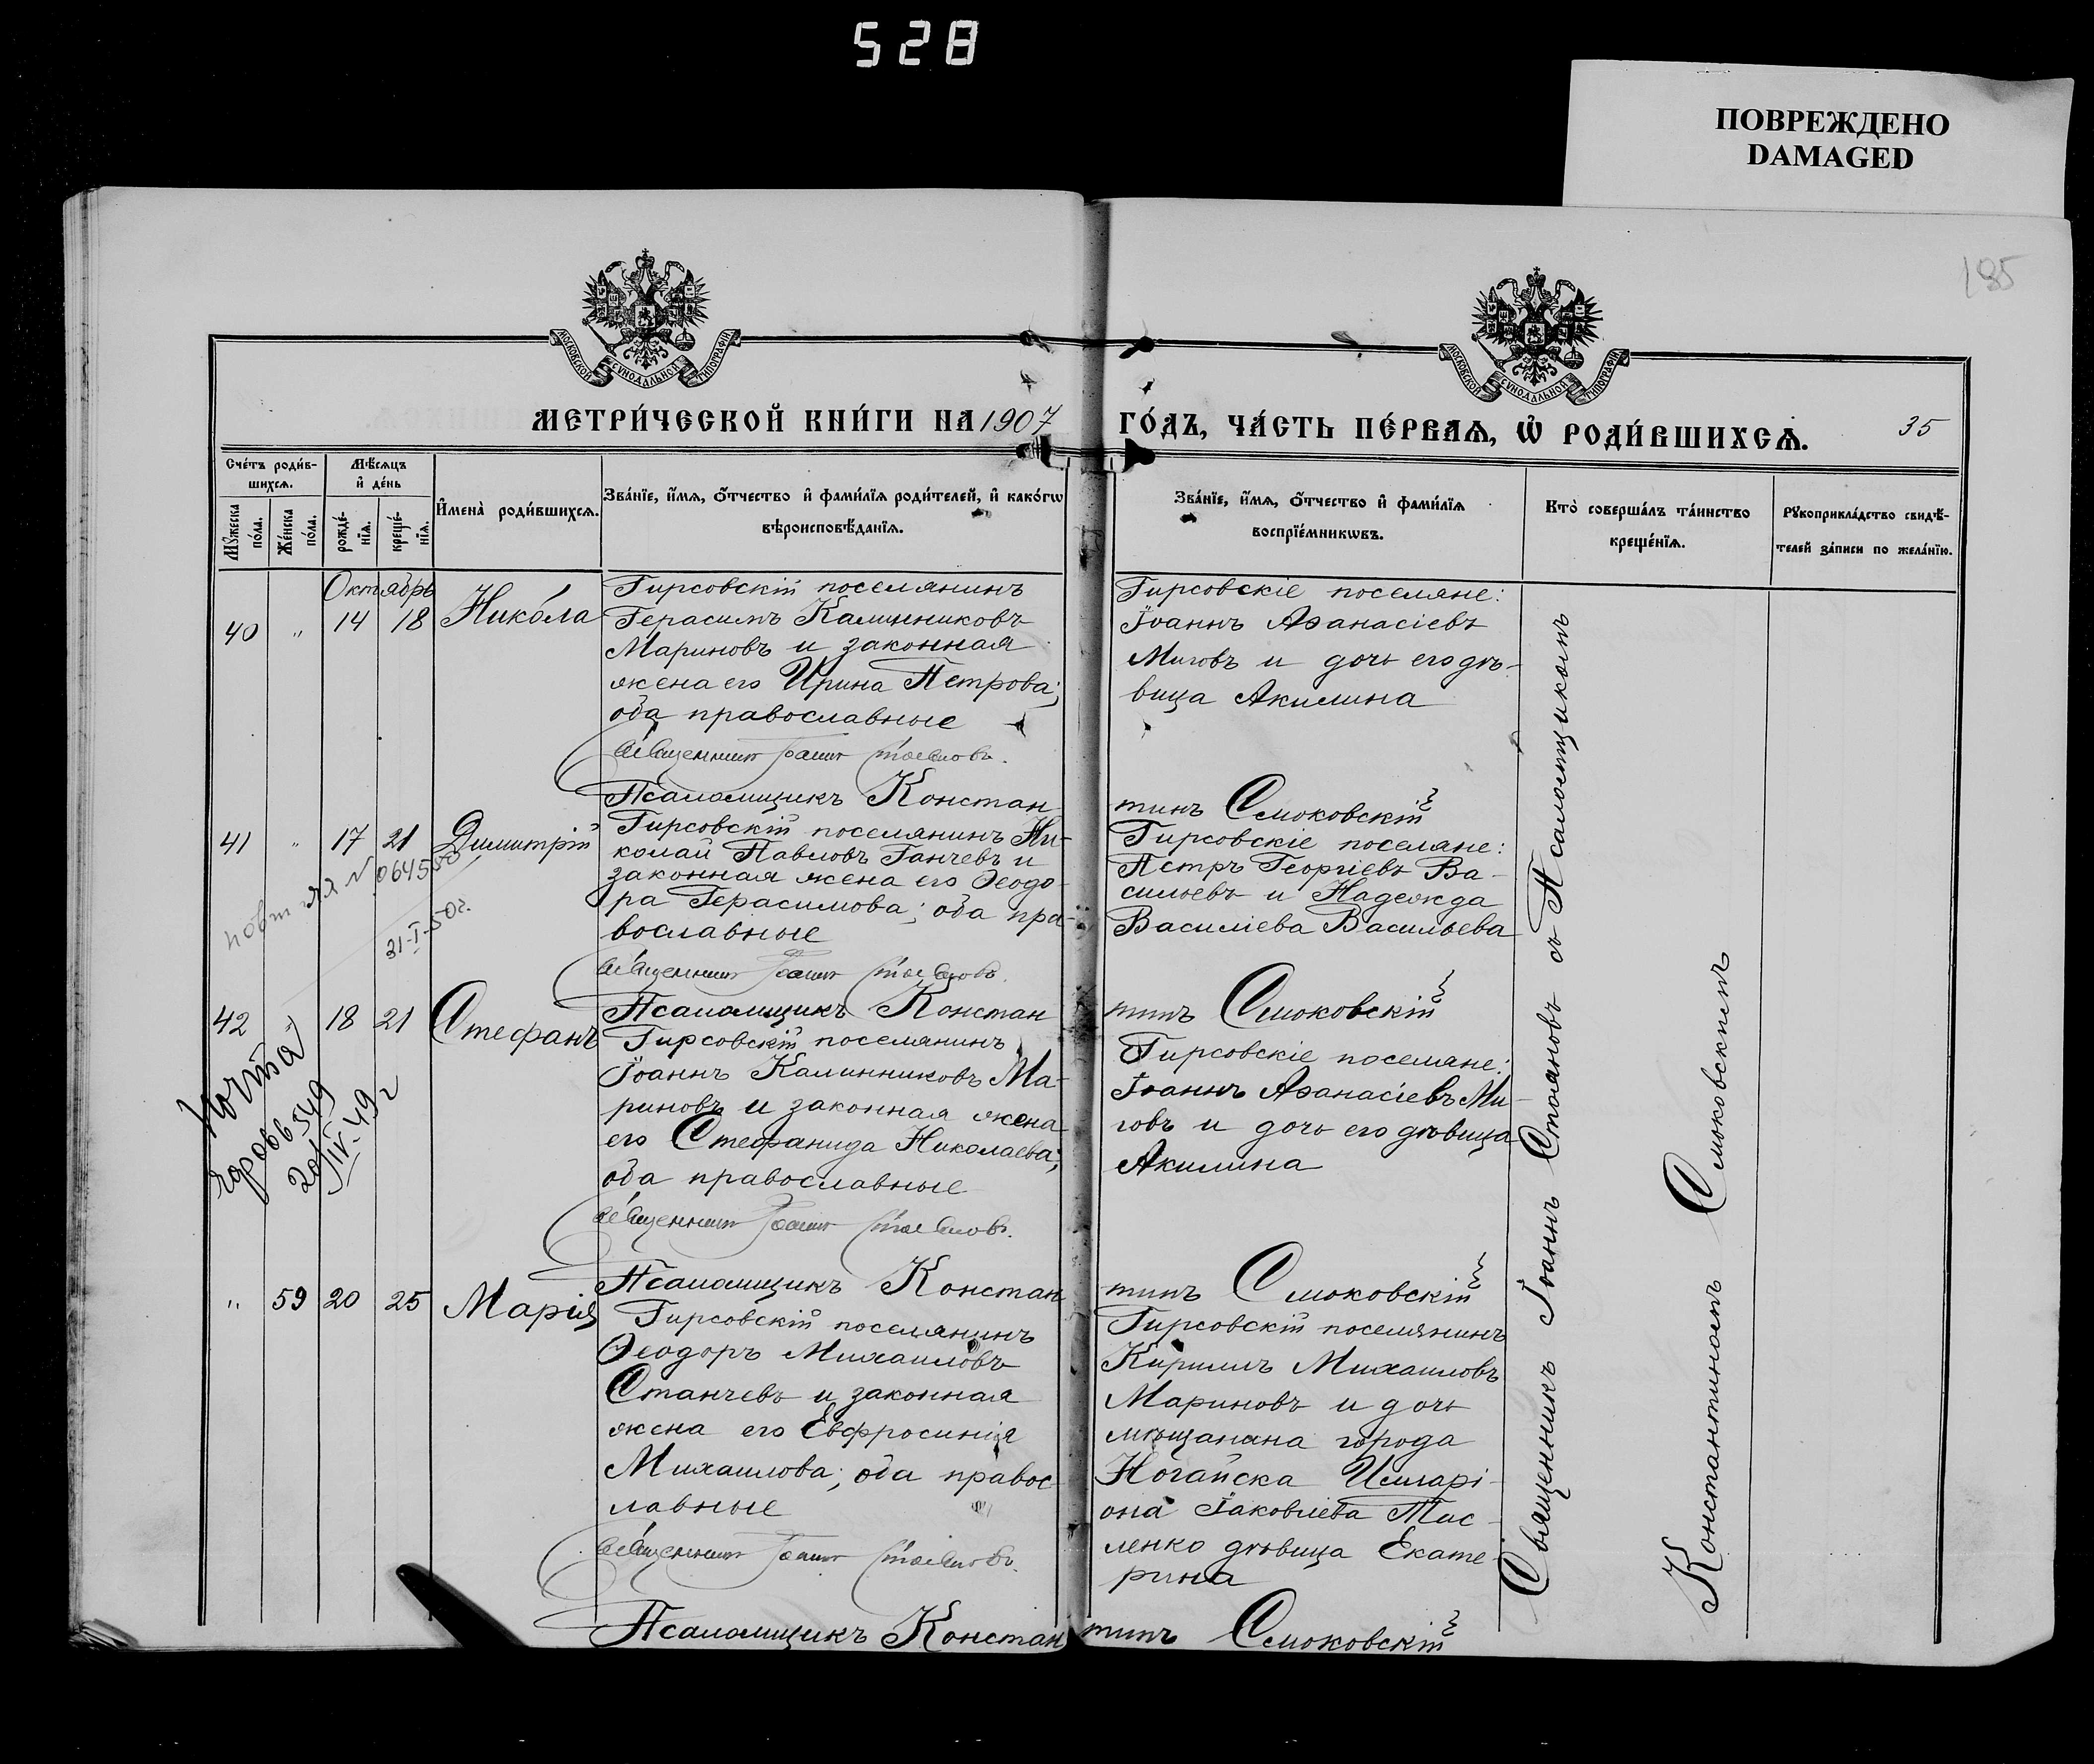 528
ПОВРЕЖДЕНО
DAMAGED
185
МОСКОВСКОЙ СУНОДАЛЬНОЙ ТИПОГРАФІИ
МОСКОВСКОЙ СУНОДАЛЬНОЙ ТИПОГРАФІИ
МЕТРИ́ЧЕСКОЙ КНИ́ГИ НА 1907
ГО́ДЪ, ЧА́СТЬ ПЕ́РВАЯ, Ѡ҆ РОДИ́ВШИХСѦ.
35
Сче́тъ роди́в-
шихсѧ.
Мѣ́сѧцъ
и҆ де́нь
Мꙋ́жеска по́ла.
Же́нска по́ла.
рожде́-нїѧ.
креще́-нїѧ.
И҆мена̀ роди́вшихсѧ.
Зва́нїе, и҆́мѧ, ѻ҆́тчество и҆ фами́лїѧ роди́телей, и҆ како́гѡ
вѣроисповѣ́данїѧ.
Зва́нїе, и҆́мѧ, ѻ҆́тчество и҆ фами́лїѧ
воспрїе́мникѡвъ.
Кто̀ соверша́лъ та́инство
креще́нїѧ.
Рꙋкоприкла́дство свидѣ́-
телей за́писи по жела́нїю.
Октябрь
40 " 14 18 Никола
Гирсовскій поселянинъ
Герасимъ Калинниковъ
Мариновъ и законная
жена его Ирина Петрова;
оба православные
Священникъ Іоаннъ Стояновъ.
Псаломщикъ Констан
Гирсовскіе поселяне:
Іоаннъ Аѳанасіевъ
Миговъ и дочь его дѣ-
вица Акилина
тинъ Смоковскій
41 " 17 21 Димитрій
Гирсовскій поселянинъ Ни-
колай Павловъ Ганчевъ и
законная жена его Ѳеодо-
ра Герасимова; оба пра-
вославные
Священникъ Іоаннъ Стояновъ.
Псаломщикъ Констан
Гирсовскіе поселяне:
Петръ Георгіевъ Ва-
сильевъ и Надежда
Василіева Васильева
тинъ Смоковскій
31-I-50г.
42 " 18 21 Стефанъ
Гирсовскій поселянинъ
Іоаннъ Калинниковъ Ма-
риновъ и законная жена
его Стефанида Николаева;
оба православные
Священникъ Іоаннъ Стояновъ.
Псаломщикъ Констан
Гирсовскіе поселяне:
Іоаннъ Аѳанасіевъ Ми-
говъ и дочь его дѣвица
Акилина
тинъ Смоковскій
20/IV-49г
" 59 20 25 Марія
Гирсовскій поселянинъ
Ѳеодоръ Михаиловъ
Станчевъ и законная
жена его Евфросинія
Михаилова; оба правос-
лавные
Священникъ Іоаннъ Стояновъ.
Псаломщикъ Констан
Гирсовскій поселянинъ
Кириллъ Михаиловъ
Мариновъ и дочь
мѣщанина города
Ногайска Иларі-
она Іаковлева Тис-
ленко дѣвица Екате-
рина
тинъ Смоковскій
Священникъ Іоаннъ Стояновъ съ Псаломщикомъ
Константиномъ Смоковскимъ